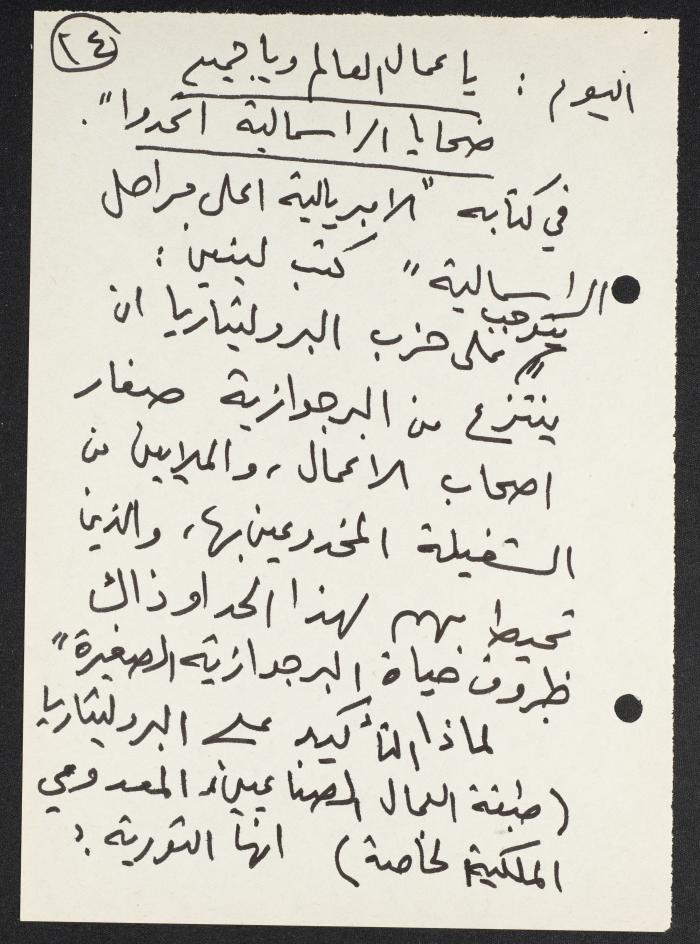 ٢٤
اليوم : يا عمال العالم ويا جميع
ضحايا الراسمالية اتحدوا".
في كتابه "الامبريالية اعلى مراحل
الراسمالية" كتب لينين :
يتوجب
" على حزب البروليتاريا ان
ينتزع من البرجوازية صغار
اصحاب الاعمال، والملايين من
الشغيلة المخدوعين بها، والذين
تحيط بهم لهذا الحد او ذاك
ظروف حياة البرجوازية الصغيرة"
لماذا التأكيد على البروليتاريا
(طبقة العمال الصناعيين المعدومي
الملكية الخاصة) انها الثورية ؟